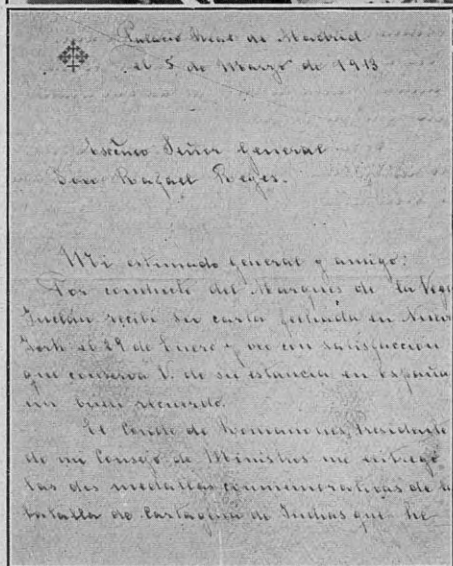 Palacio Real de Madrid
el 5 de Marzo de 1913
Excmo Señor General
Don Rafael Reyes.
Mi estimado general y amigo:
Por conducto del Marques de la Vega
Inclán recibí su carta fechada en Nueva
York el 29 de Enero y veo con satisfaccion
que conserva V. de su estancia en España
un buen recuerdo.
El Conde de Romanones, Presidente
de mi Consejo de Ministros me entregó
las dos medallas conmemorativas de la
batalla de Cartagena de Indias que he